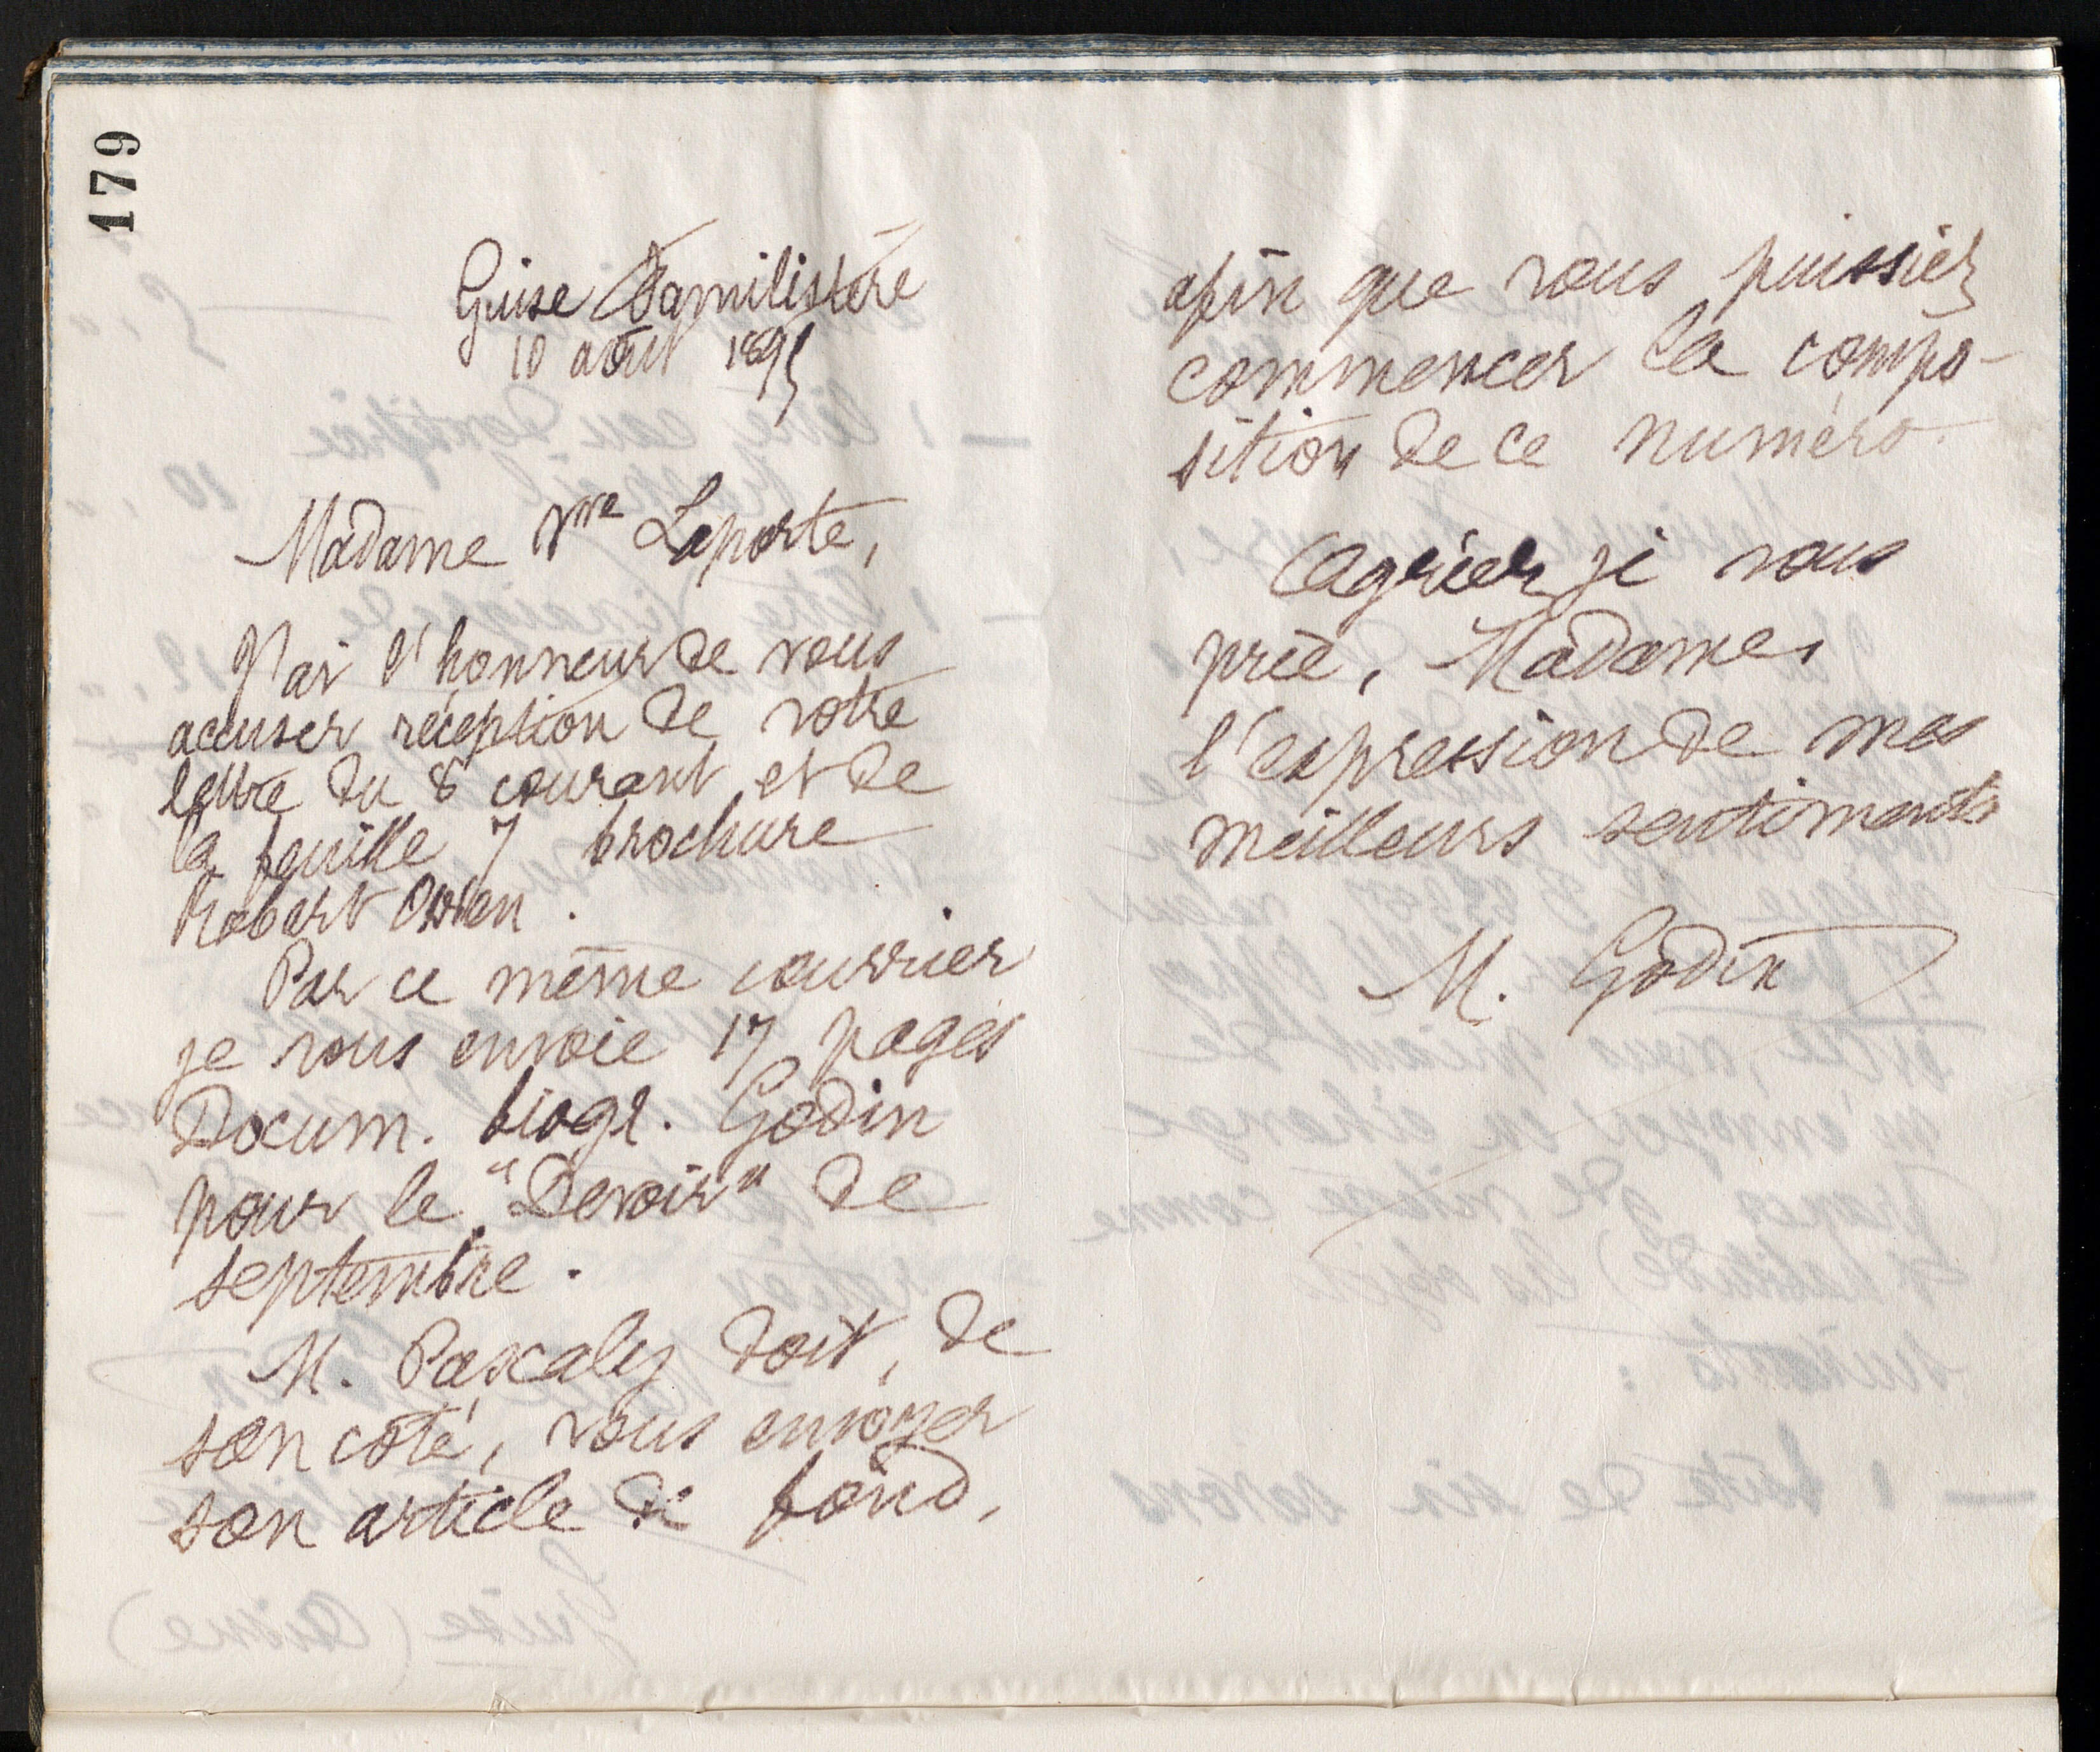 179
Guise Familistère
10 août 1895
Madame Vve Laporte,
J'ai l'honneur de vous
accuser réception de votre
lettre du 8 courant et de
la feuille 7 brochure
Robert Owen.
Par ce même courrier
je vous envoie 17 pages
Docum. biogr. Godin
pour le "Devoir" de
septembre.
M. Pascaly doit, de
son côté, vous envoyer
son article de fond,
afin que vous puissiez
commencer la compo-
sition de ce numéro.
Agréez je vous
prie, Madame,
l'expression de mes
meilleurs sentiments
M. Godin